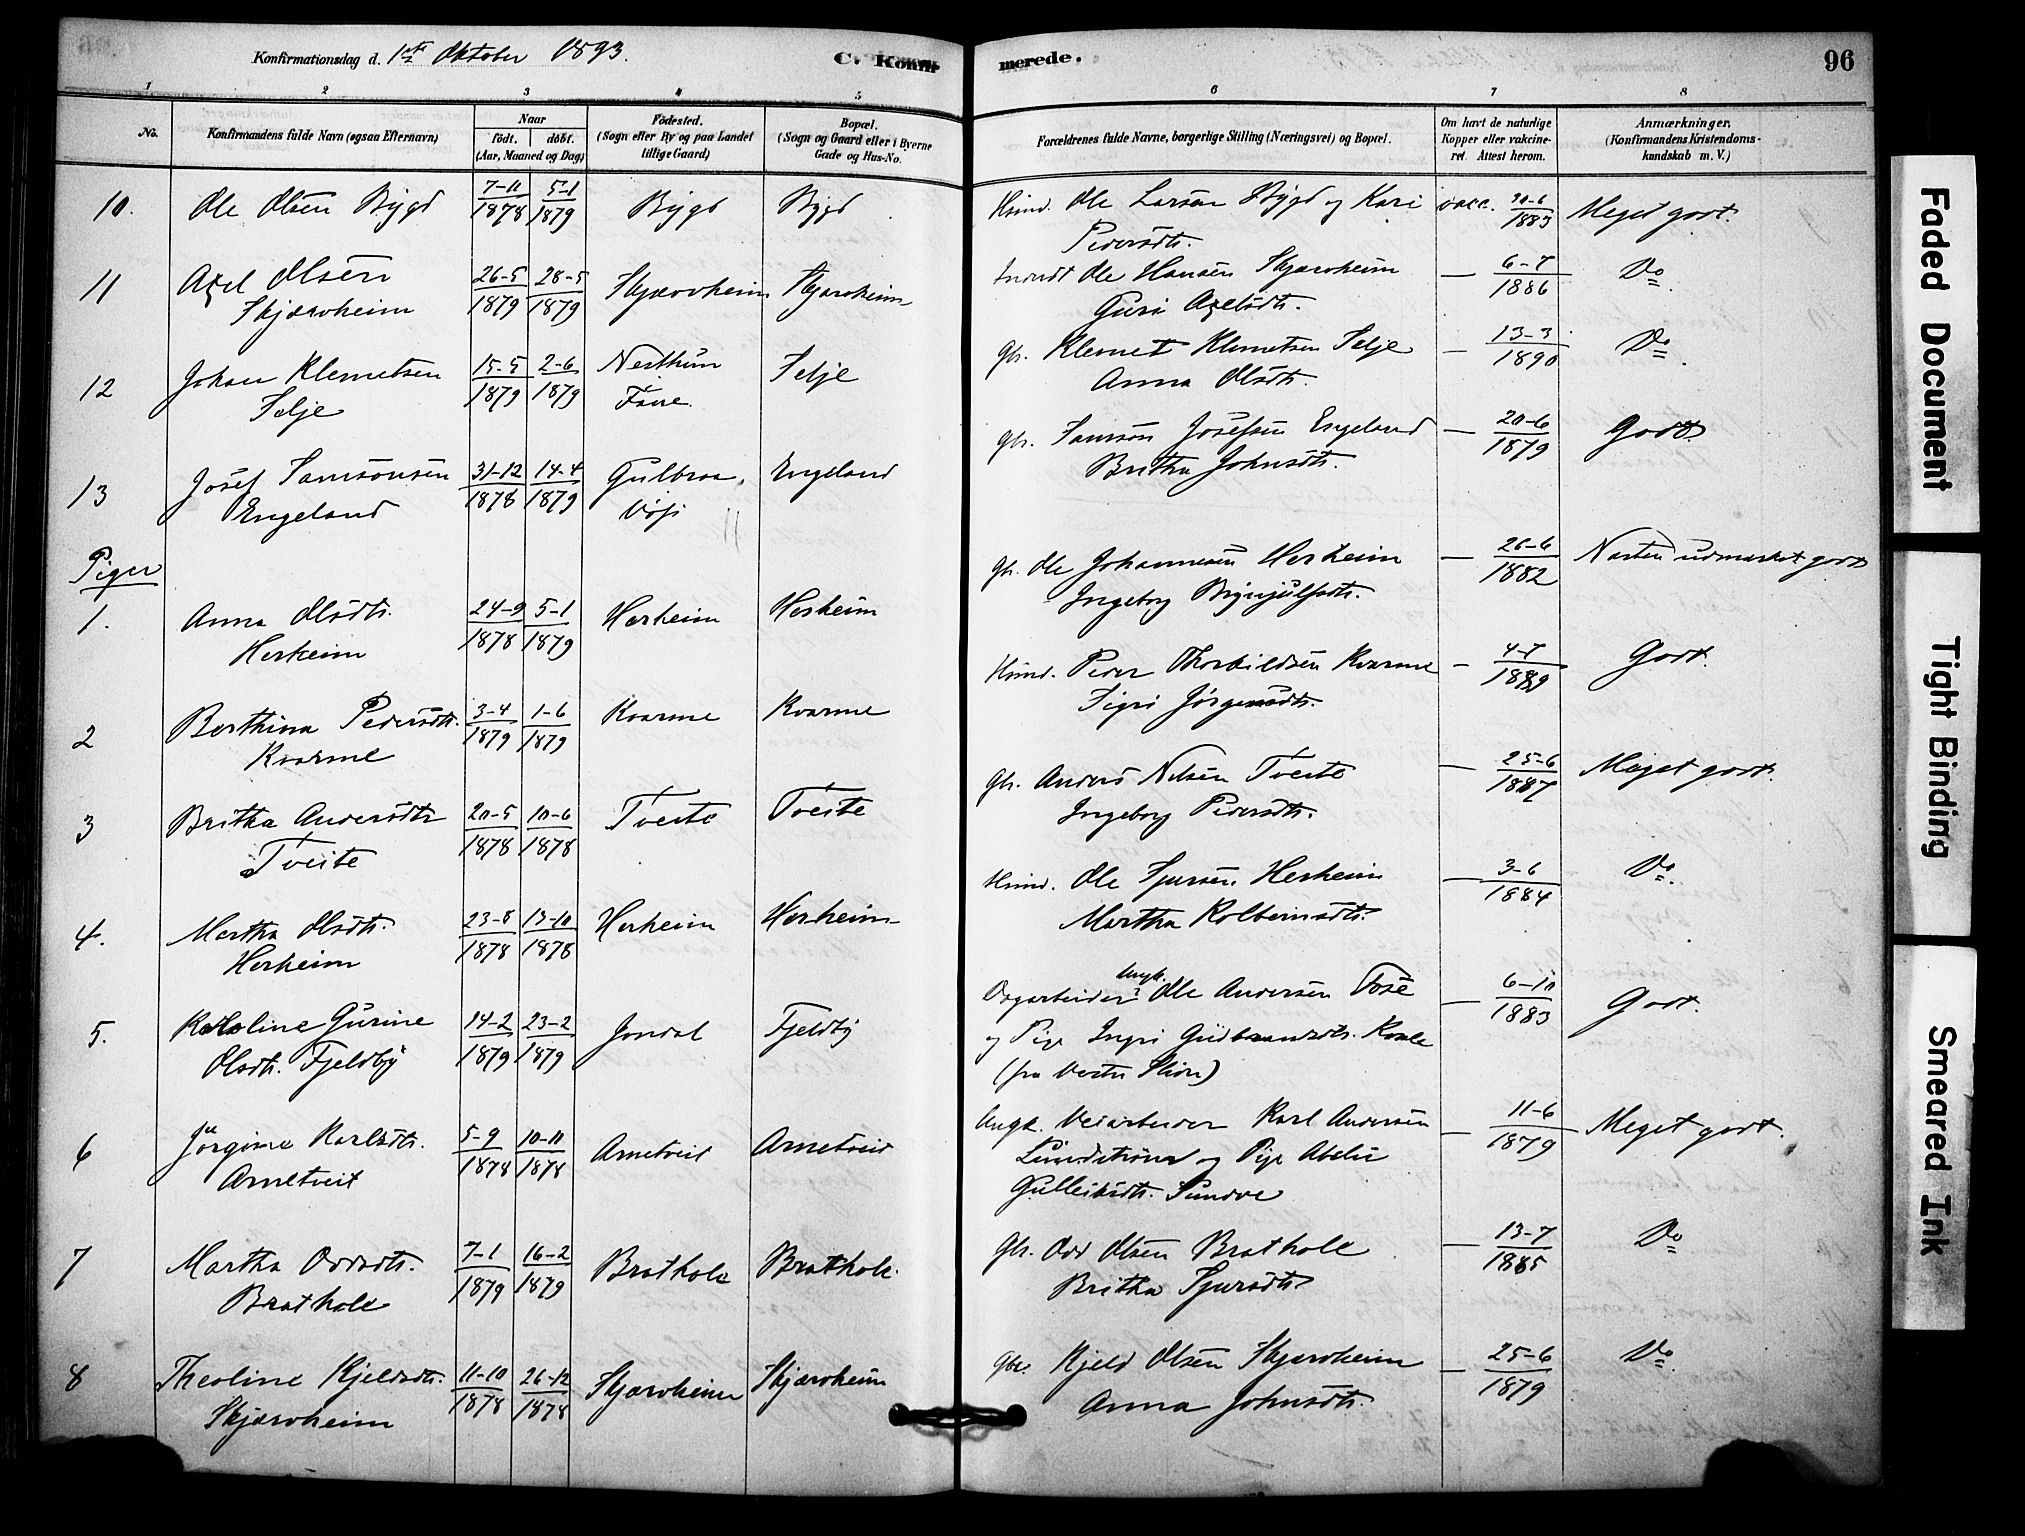 Konfirmationsdag d. 1ste Oktober 1893.
C. Konfirmerede.
96
1 2 3 4 5 6 7 8
No.
Konfirmandens fulde Navn (ogsaa Efternavn)
Naar
födt. döbt.
(Aar, Maaned og Dag)
Födested.
(Sogn eller By og paa Landet
tillige Gaard)
Bopæl.
(Sogn og Gaard eller i Byerne
Gade og Hus-No.
Forældrenes fulde Navne, borgerlige Stilling (Næringsvei) og Bopæl.
Om havt de naturlige
Kopper eller vakcine-
ret. Attest herom.
Anmærkninger,
(Konfirmandens Kristendoms-
kundskab m. V.)
10. Ole Olsen Bygd 7-11 1878 5-1 1879 Bygd Bygd Huusd. Ole Larsen Bygd og Kari vacc. 30-6 1883 Meget godt.
Pedersdtr.
11 Axel Olsen 26-5 1879 28-5 1879 Skjærvheim Skjærvheim Inderst Ole Hansen Skjærvheim — 6-7 1886 Do
Skjærvheim Guri Axelsdtr.
12 Johan Klemetsen 15-5 1879 2-6 1879 Nesthun Selje Gbr. Klemet Klemetsen Selje — 13-3 1890 Do
Selje Fane. Anna Olsdtr.
13 Josef Samsonsen 31-12 1878 14-4 1879 Gulbraa, Engeland Gbr. Samson Josefsen Engeland — 20-6 1879 Godt
Engeland Britha Johnsdtr.
Piger
1. Anna Olsdtr. 24-9 1878 5-1 1879 Herheim Herheim Gbr. Ole Johannesen Herheim — 26-6 1882 Næsten udmærket godt
Herheim Ingeborg Brynjulfsdtr.
2 Berthina Pedersdtr. 3-4 1879 1-6 1879 Kvarme Kvarme Huusd. Peder Thorkildsen Kvarme — 4-7 1889 Godt.
Kvarme Sigri Jörgensdtr.
3 Britha Andersdtr 20-5 1878 10-6 1878 Tveite Tveite Gbr. Anders Nelsen Tveite — 25-6 1887 Meget godt.
Tveite Ingeborg Pedersdtr.
4. Martha Olsdtr. 23-8 1878 13-10 1878 Herheim Herheim Huusd. Ole Sjursen Herheim — 3-6 1884 Do.
Herheim Martha Kolbeinsdtr.
5. Karoline Gurine 14-2 1879 23-2 1879 Jondal Fjeldby Ungk. Ole Andersen Tose — 6-10 1883 Godt.
Olsdtr. Fjeldby og Pige Ingri Gudbrandsdtr.
(fra Vestre Slidre)
6 Jörgine Karlsdtr. 5-9 1878 10-11 1878 Arnetveit Arnetveit Ungk. Veiarbeider Karl Andersen — 11-6 1879 Meget godt.
Arnetveit Lundström og Pige Abelu
Gulleiksdtr. Sundve
7 Martha Oddsdtr. 7-1 1879 16-2 1879 Brathole Brathole. Gbr. Odd Olsen Brathole — 13-7 1885 Do
Brathole Britha Sjursdtr.
8 Theoline Kjeldsdtr. 11-10 1878 26-12 1878 Skjærvheim Skjærvheim Gbr. Kjeld Olsen Skjærvheim — 25-6 1879 Do.
Skjærvheim Anna Johnsdtr.
Faded Document
Tight Binding
Smeared Ink